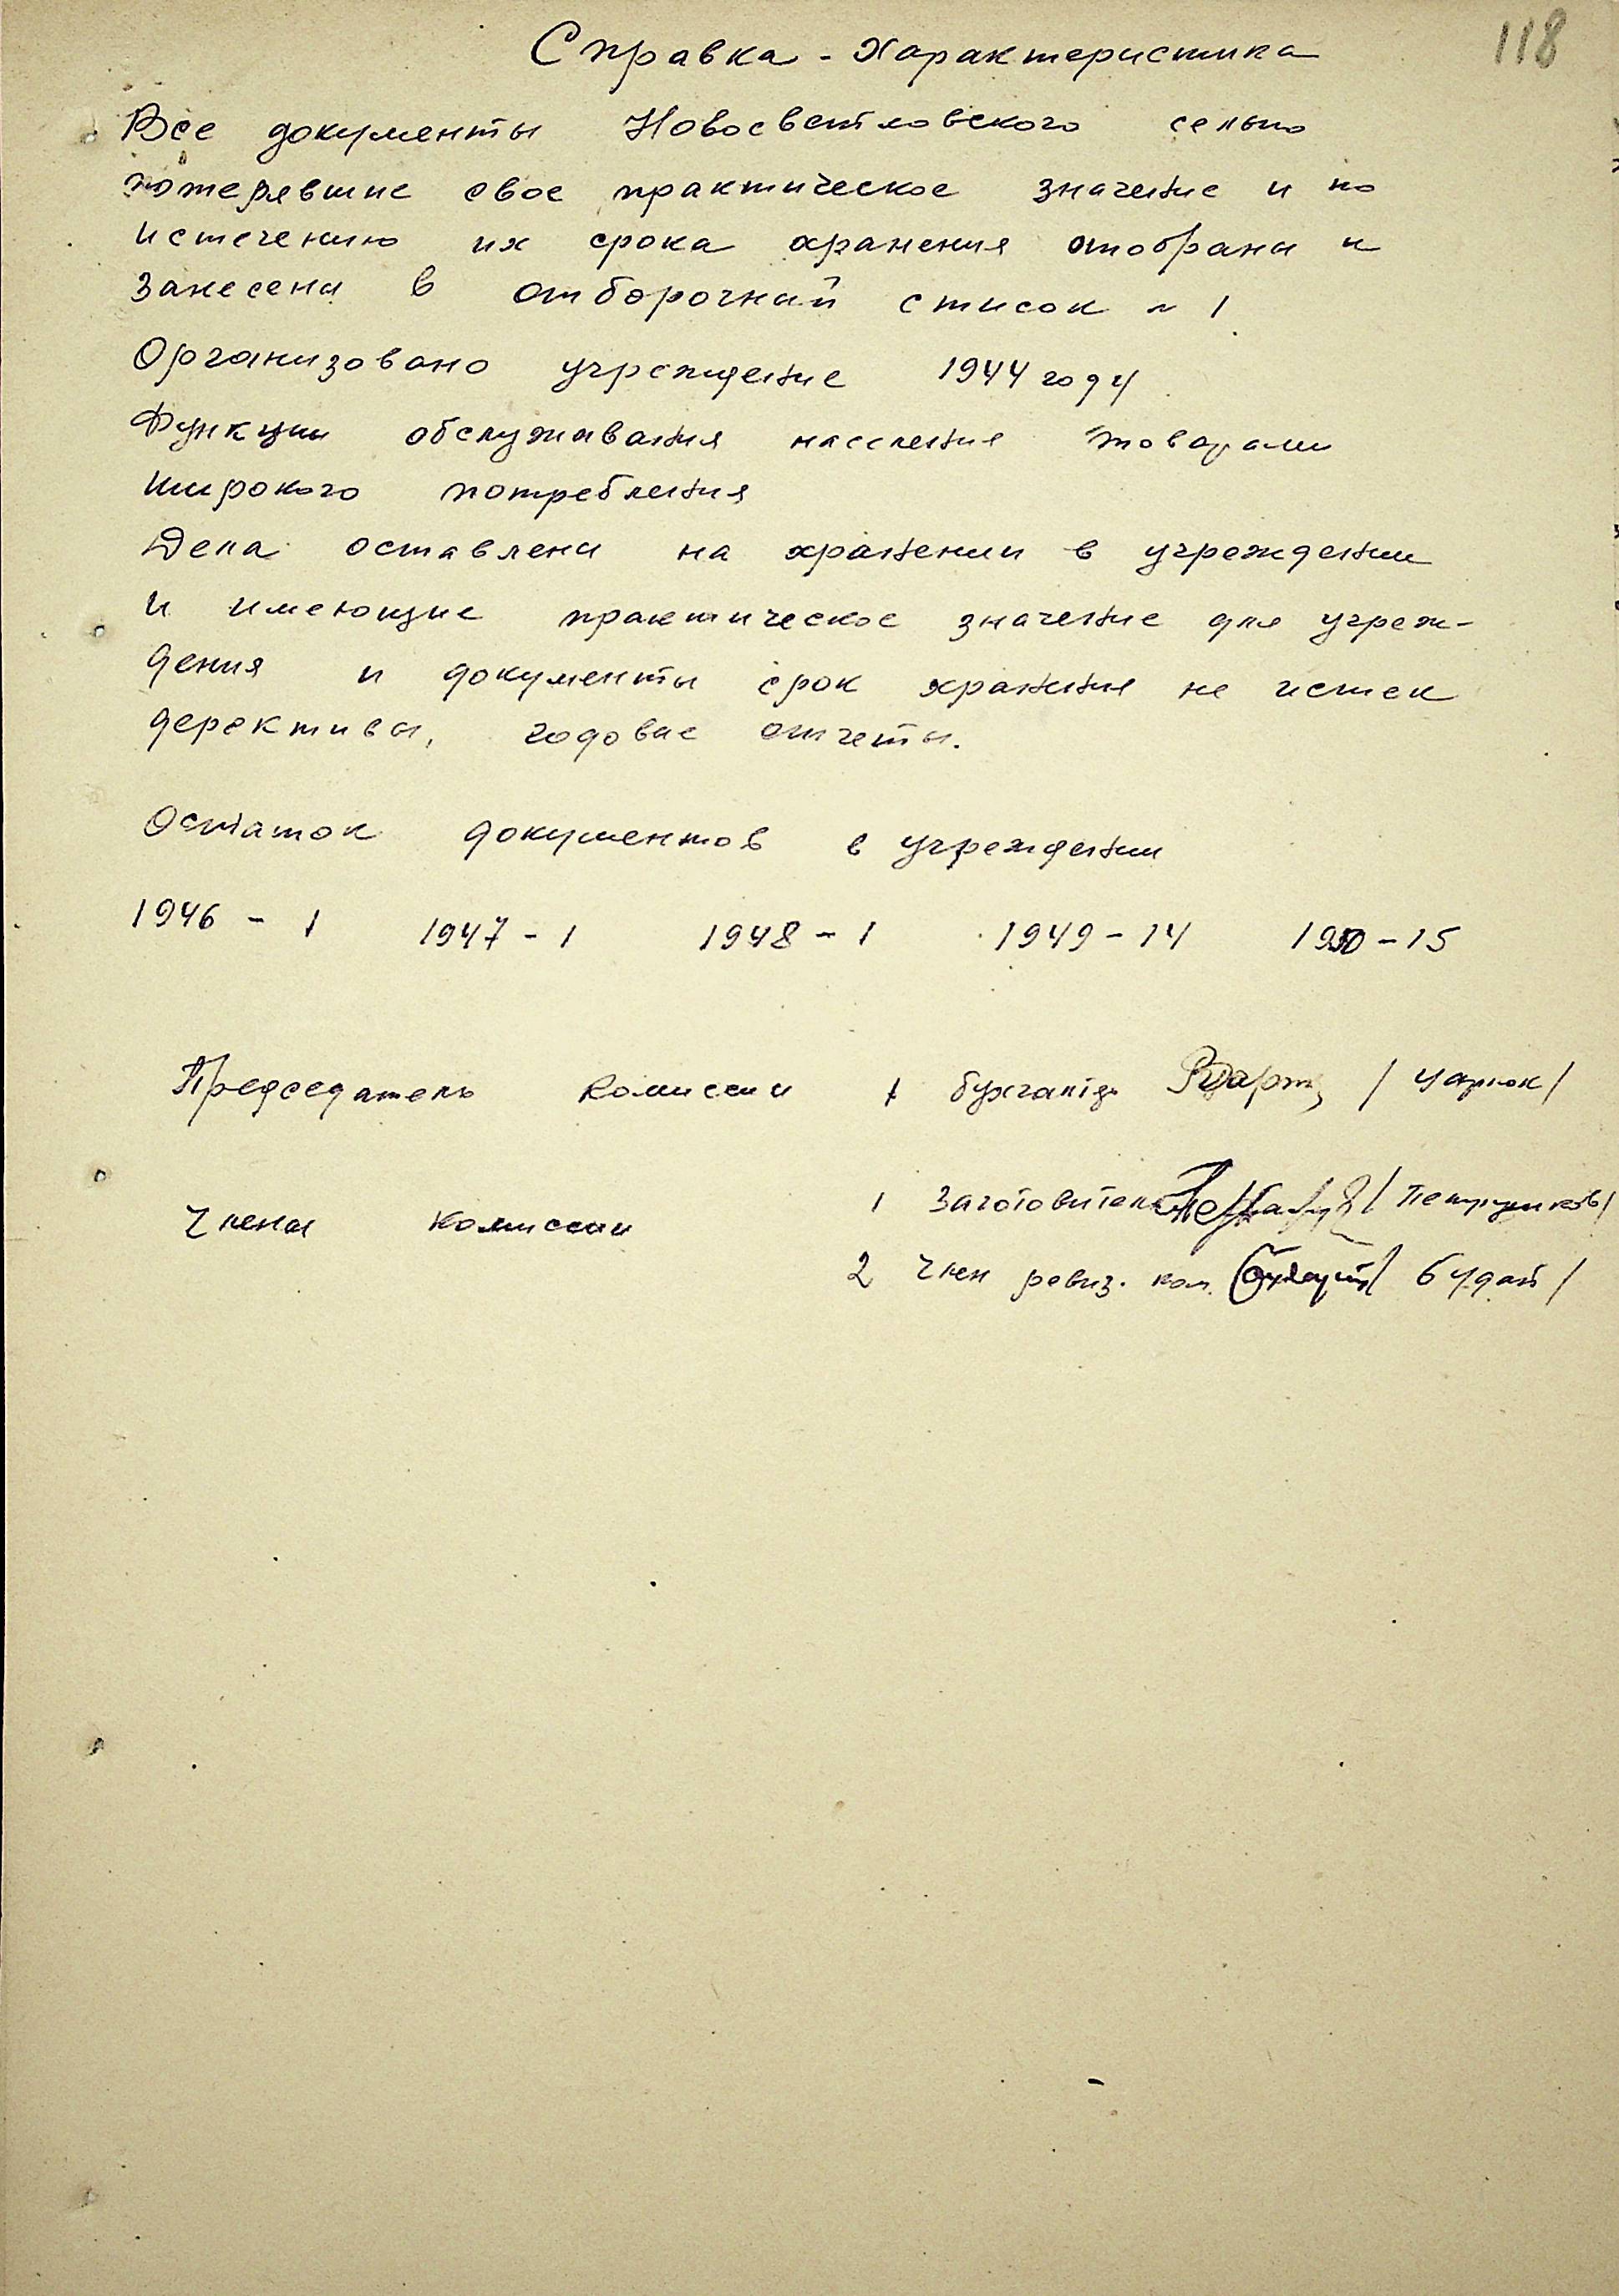 118
Справка - Характеристика
Все документы Новосветловского сельпо
потерявшие свое практическое значение и по
истечению их срока хранения отобраны и
занесены в отборочный список № 1
Организовано учреждение 1944 году
Функции обслуживания населения товарами
широкого потребления
Дела оставлены на хранении в учреждении
и имеющие практическое значение для учреж-
дения и документы срок хранения не истек
дерективы, годовые отчеты.
Остаток документов в учреждении
1946 - 1 1947 - 1 1948 - 1 1949 - 14 1950 - 15
Председатель комиссии 1 бухгалтер
Члены комиссии 1 Заготовитель / Петрушков /
2 Член ревиз. ком. / Будай /